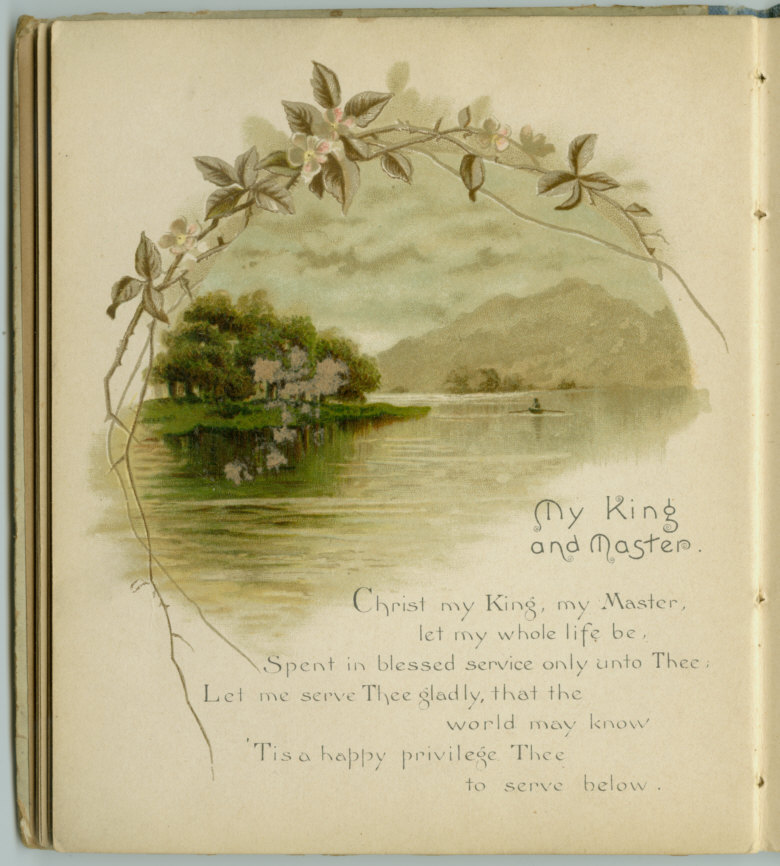 My King
and Master.
Christ my King, my Master,
let my whole life be,
Spent in blessed service only unto Thee;
Let me serve Thee gladly, that the
world may know
'Tis a happy privilege Thee
to serve below.